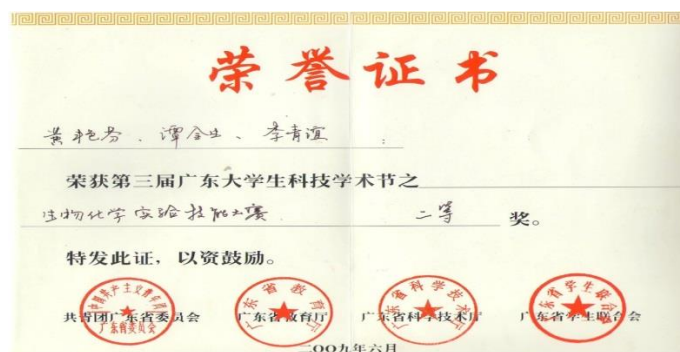 荣誉证书
黄艳芬、谭金生、李青谊：
荣获第三届广东大学生科技学术节之
生物化学实验技能大赛 二等 奖。
特发此证，以资鼓励。
共青团广东省委员会 广东省教育厅 广东省科学技术厅 广东省学生联合会
二〇〇九年六月